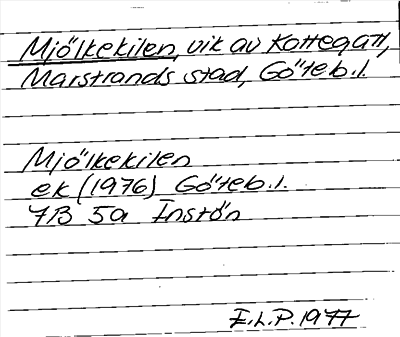 Mjölkekilen, vik av Kattegatt,
Marstrands stad, Göteb.l.
Mjölkekilen
ek (1976) Göteb.l.
7B 5a Instön
E.L.P. 1977